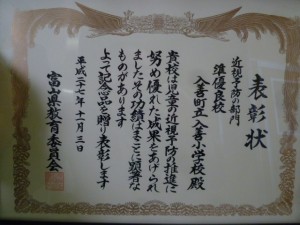 表彰状
近視予防の部門
準優良校
入善町立入善小学校殿
貴校は児童の近視予防の推進に
努め優れた成果をあげられ
ましたその功績はまことに顕著な
ものがあります
よって記念品を贈り表彰します
平成二十七年十一月三日
富山県教育委員会